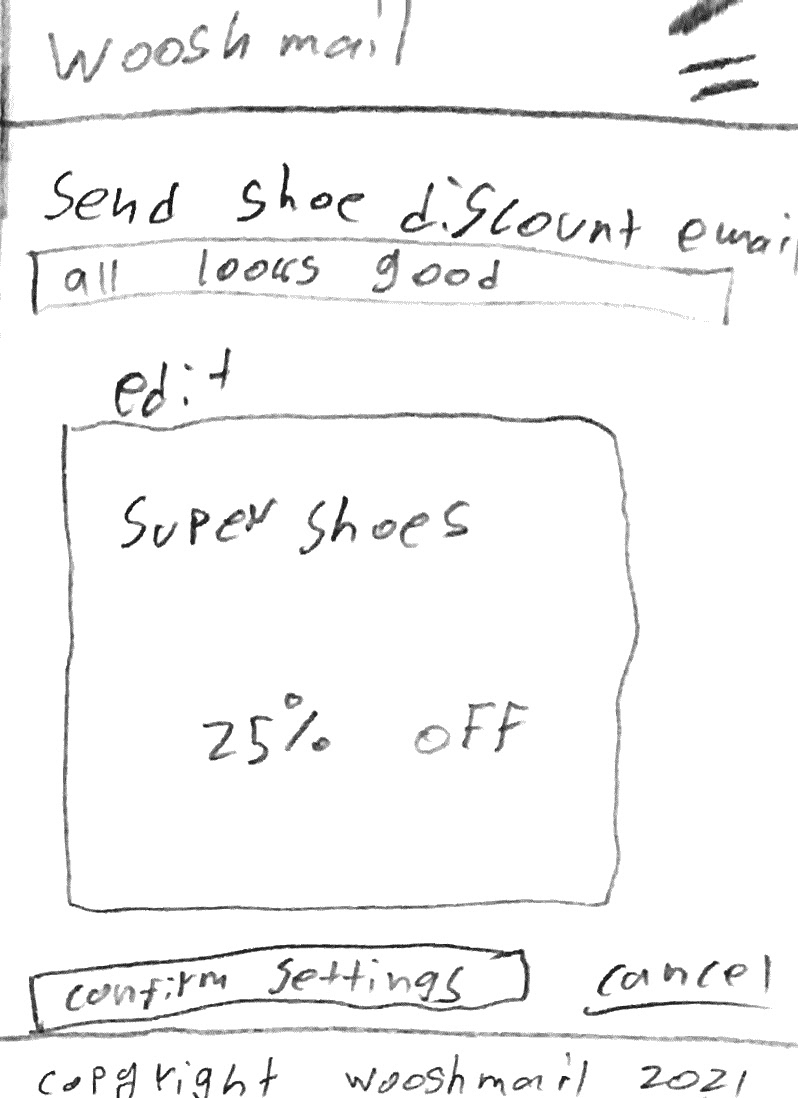 woosh mail
Send shoe discount email
all looks good
edit
Super shoes
25% off
confirm settings cancel
copyright wooshmail 2021